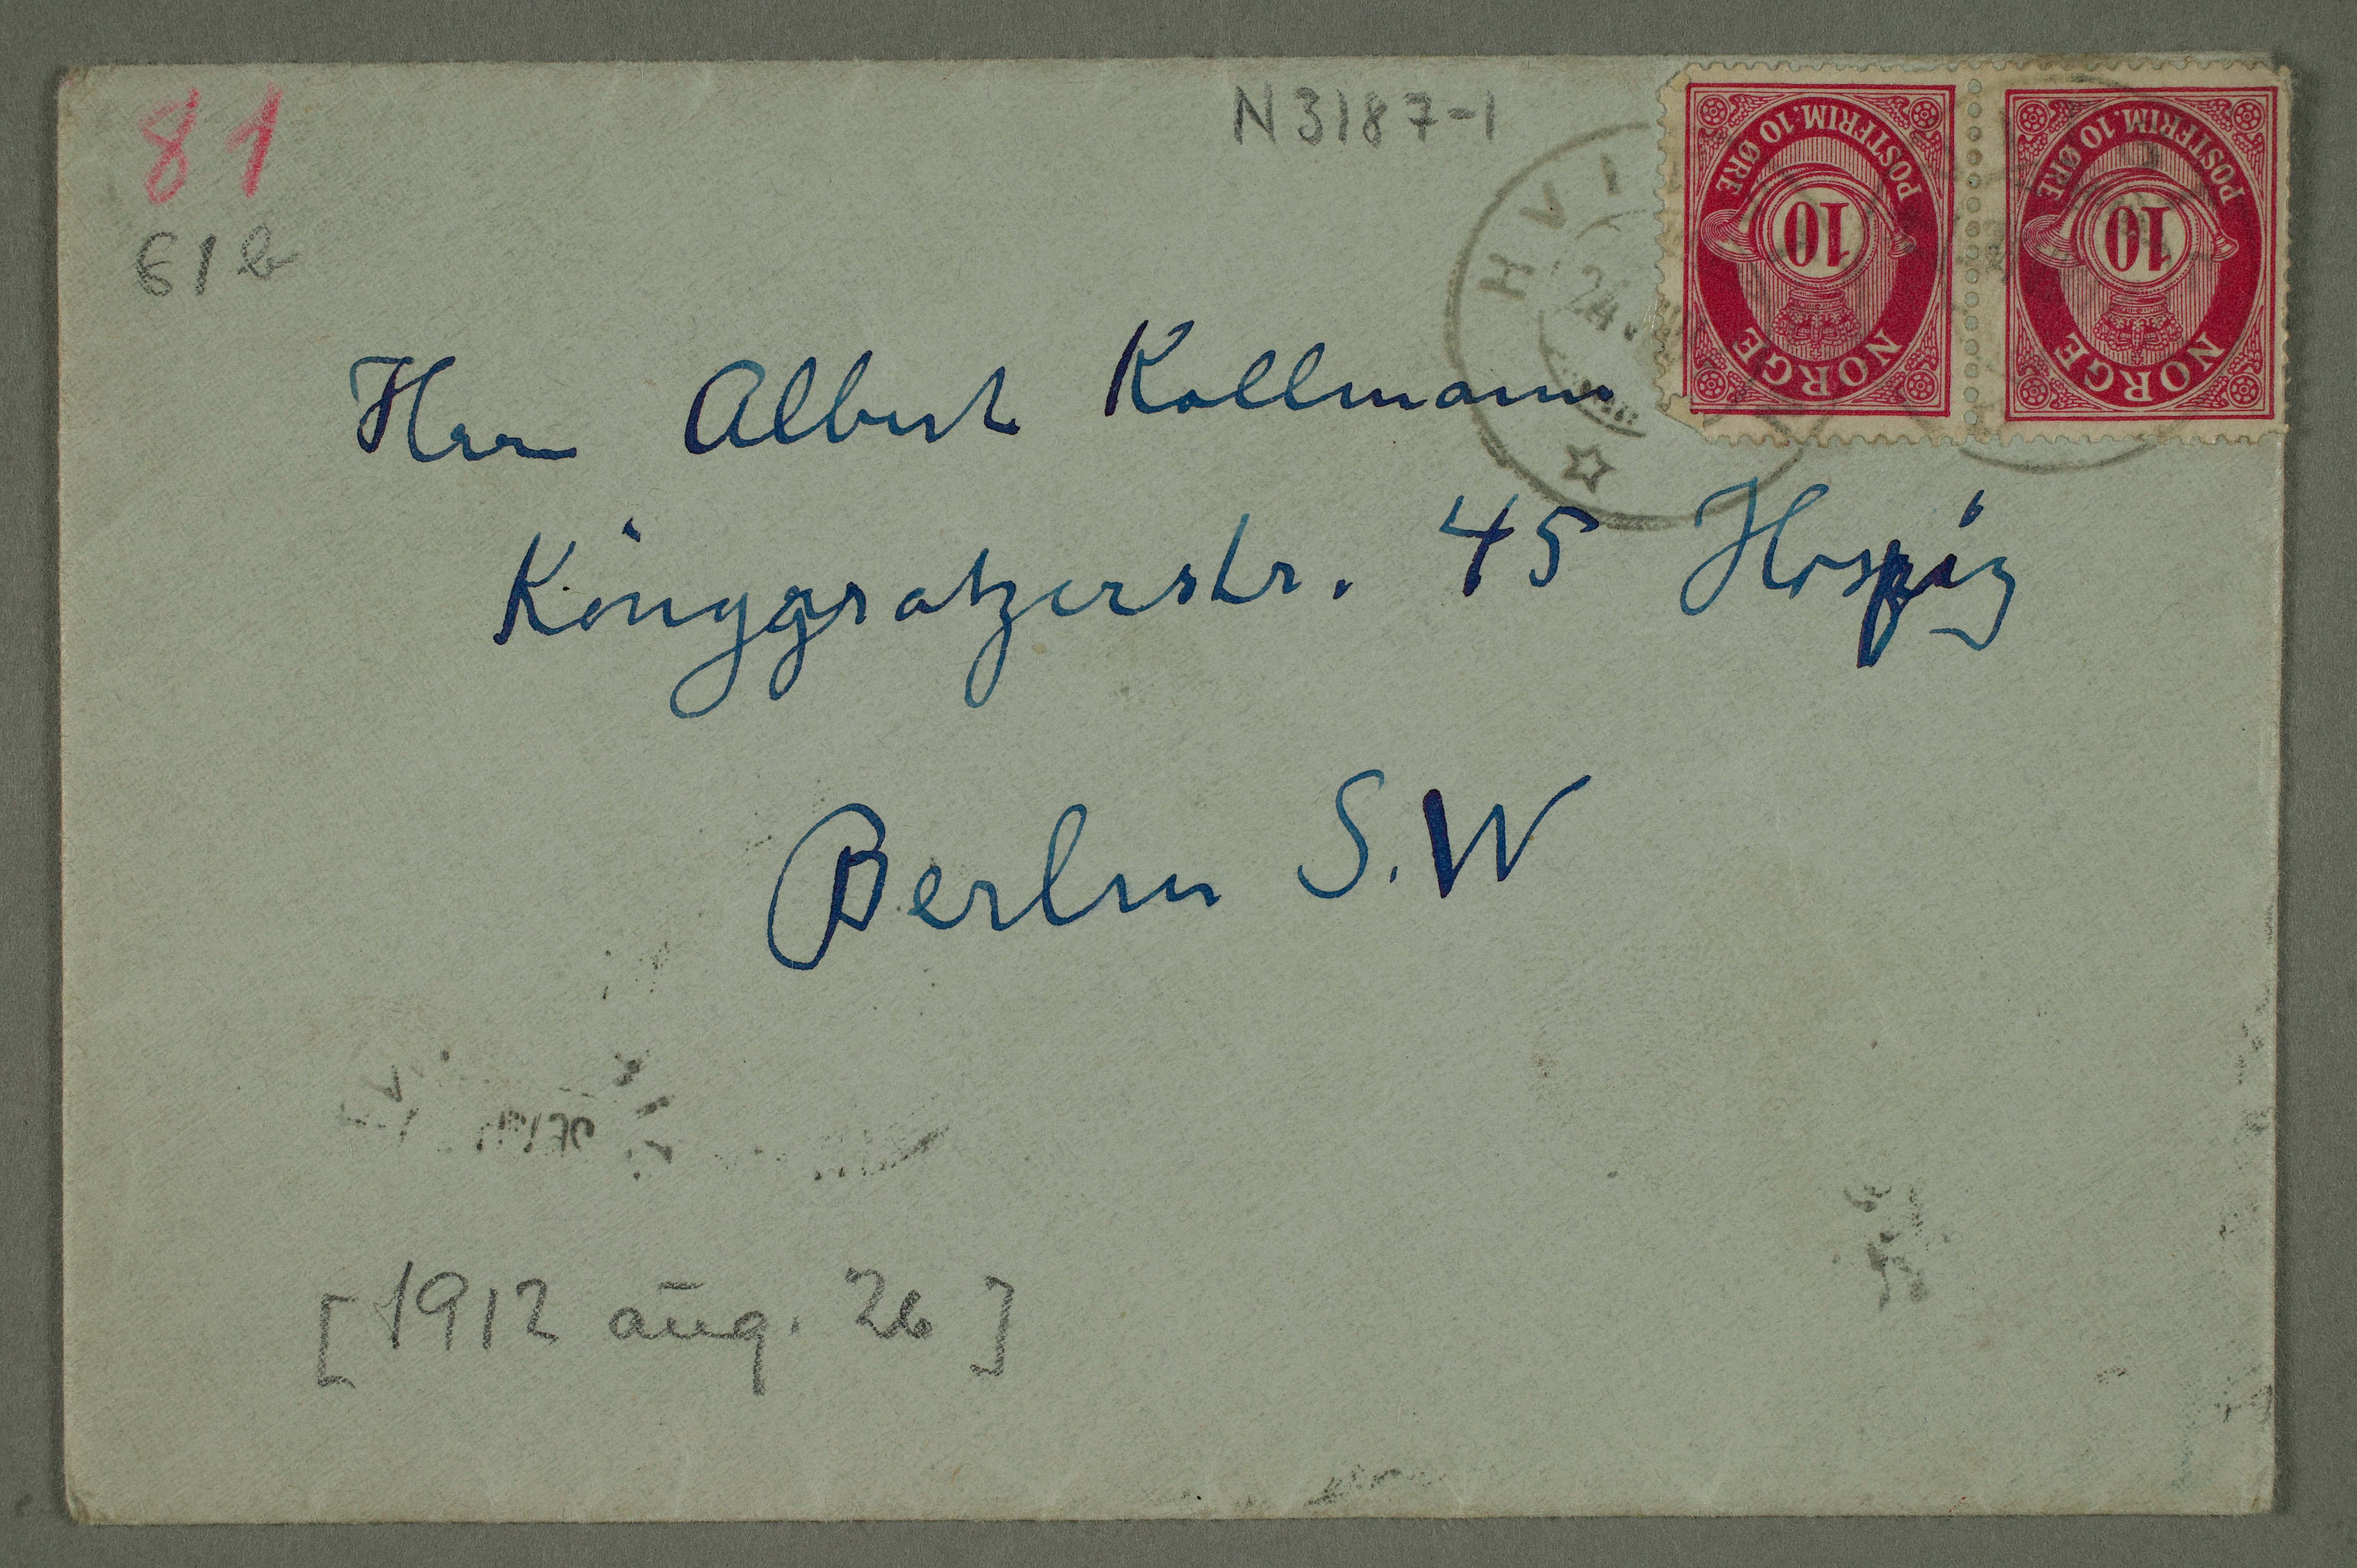 81
61b
N3187-1
HVI
24
POSTFRIM. 10 ØRE
10
NORGE
POSTFRIM. 10 ØRE
10
NORGE
Herr Albert Kollmann
Königgratzerstr. 45 Hospiz
Berlin S.W
[1912 aug. 26]